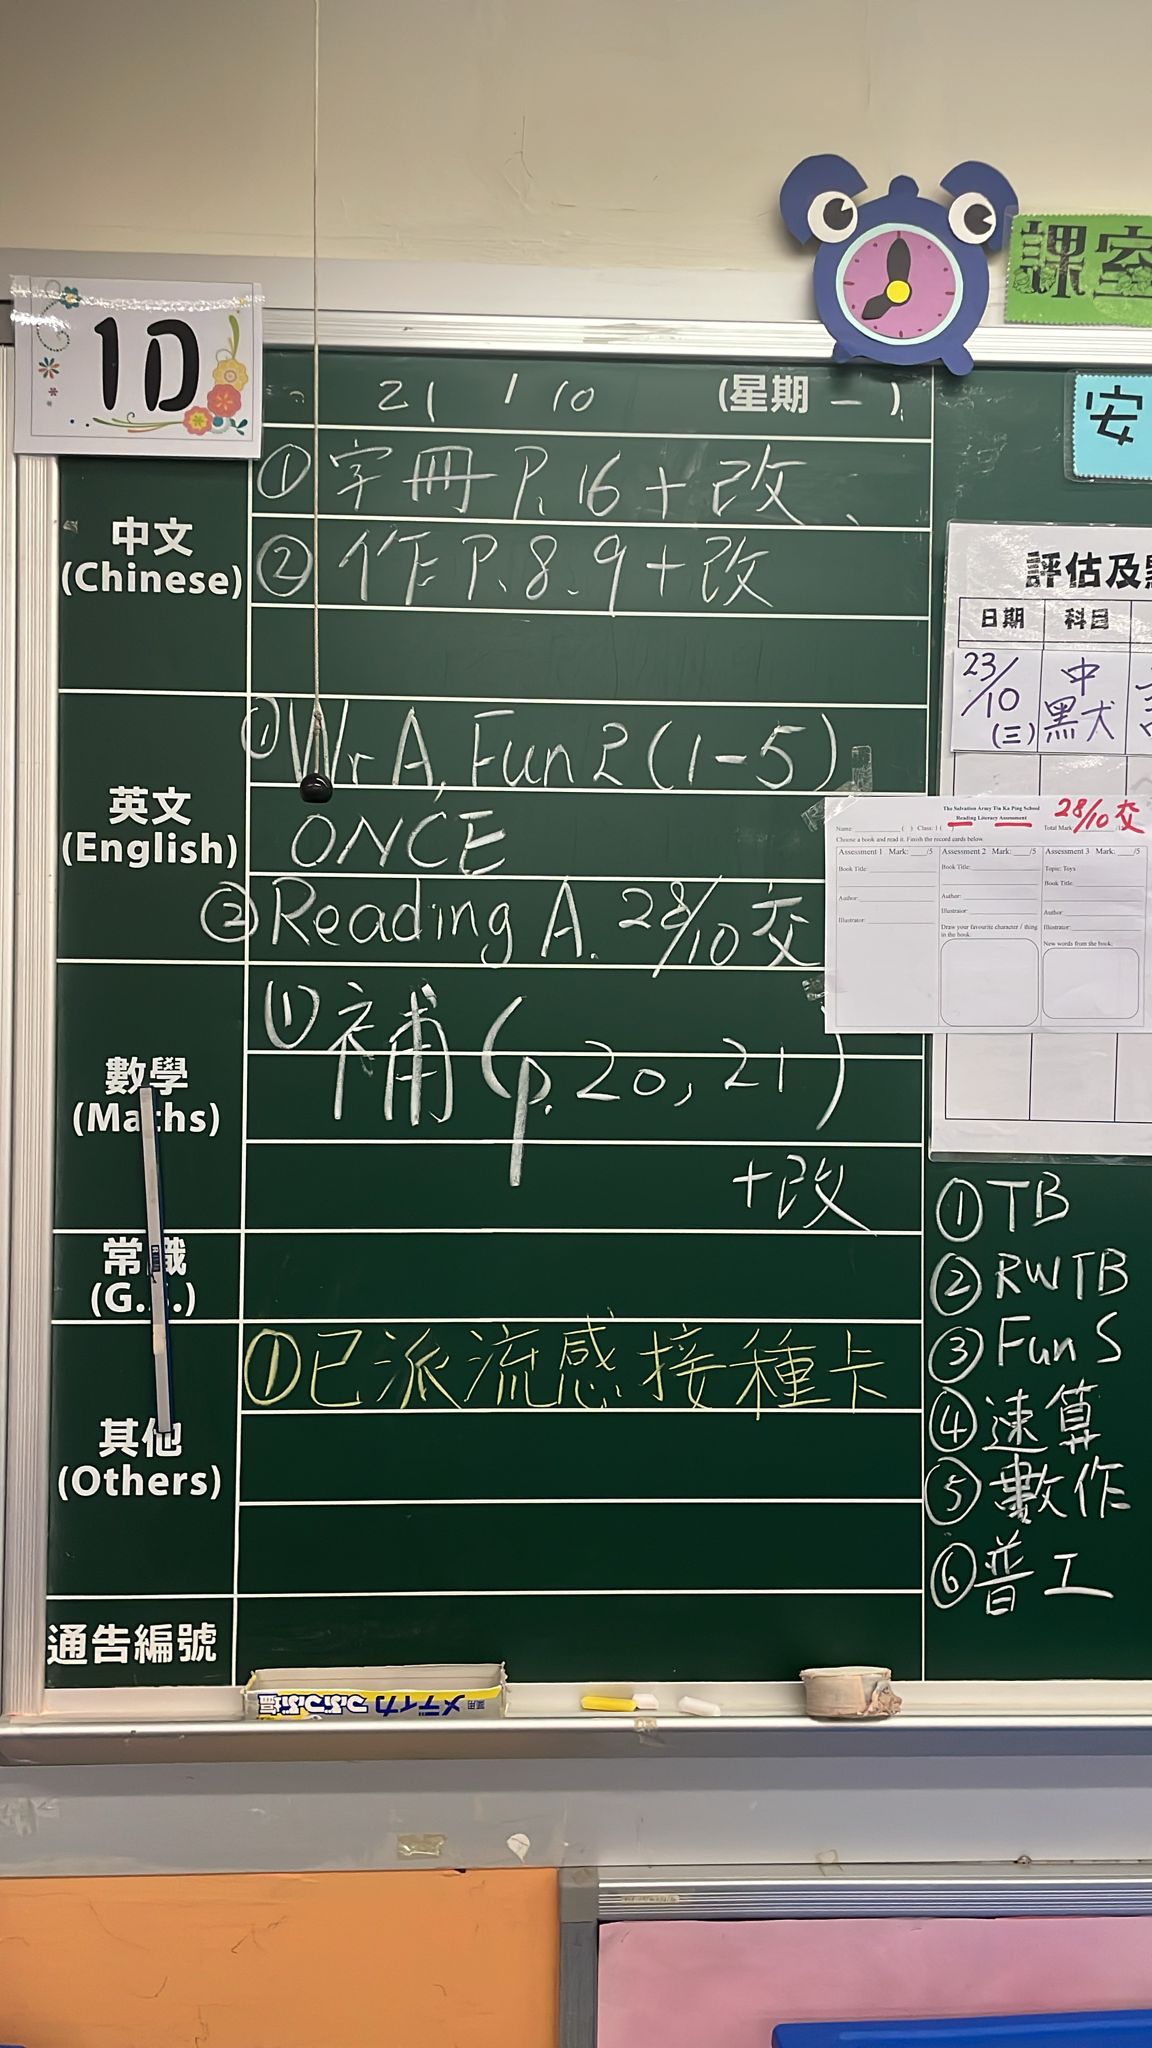 1D
課室
安
21 / 10 (星期一)
中文
(Chinese)
①字冊P.16+改、
②作P.8.9+改
英文
(English)
①Wr A, Fun 2 (1-5)
ONCE
②Reading A. 28/10 交
數學
(Maths)
①補(p.20,21)
+改
常識
(G.S.)
其他
(Others)
①已派流感接種卡
通告編號
評估及
日期 科目
23/10 (三) 中黑犬
The Salvation Army Tin Ka Ping School
Reading Literacy Assessment
28/10 交
Name: ( ) Class: 1 ( ) Total Mark:
Choose a book and read it. Finish the record cards below.
Assessment 1 Mark: ____/5
Book Title:
Author:
Illustrator:
Assessment 2 Mark: ____/5
Book Title:
Author:
Illustrator:
Draw your favourite character / thing
in the book.
Assessment 3 Mark: ____/5
Topic: Toys
Book Title:
Author:
Illustrator:
New words from the book:
①TB
②RWTB
③Fun S
④速算
⑤數作
⑥普工
メディカつぶつぶ塩